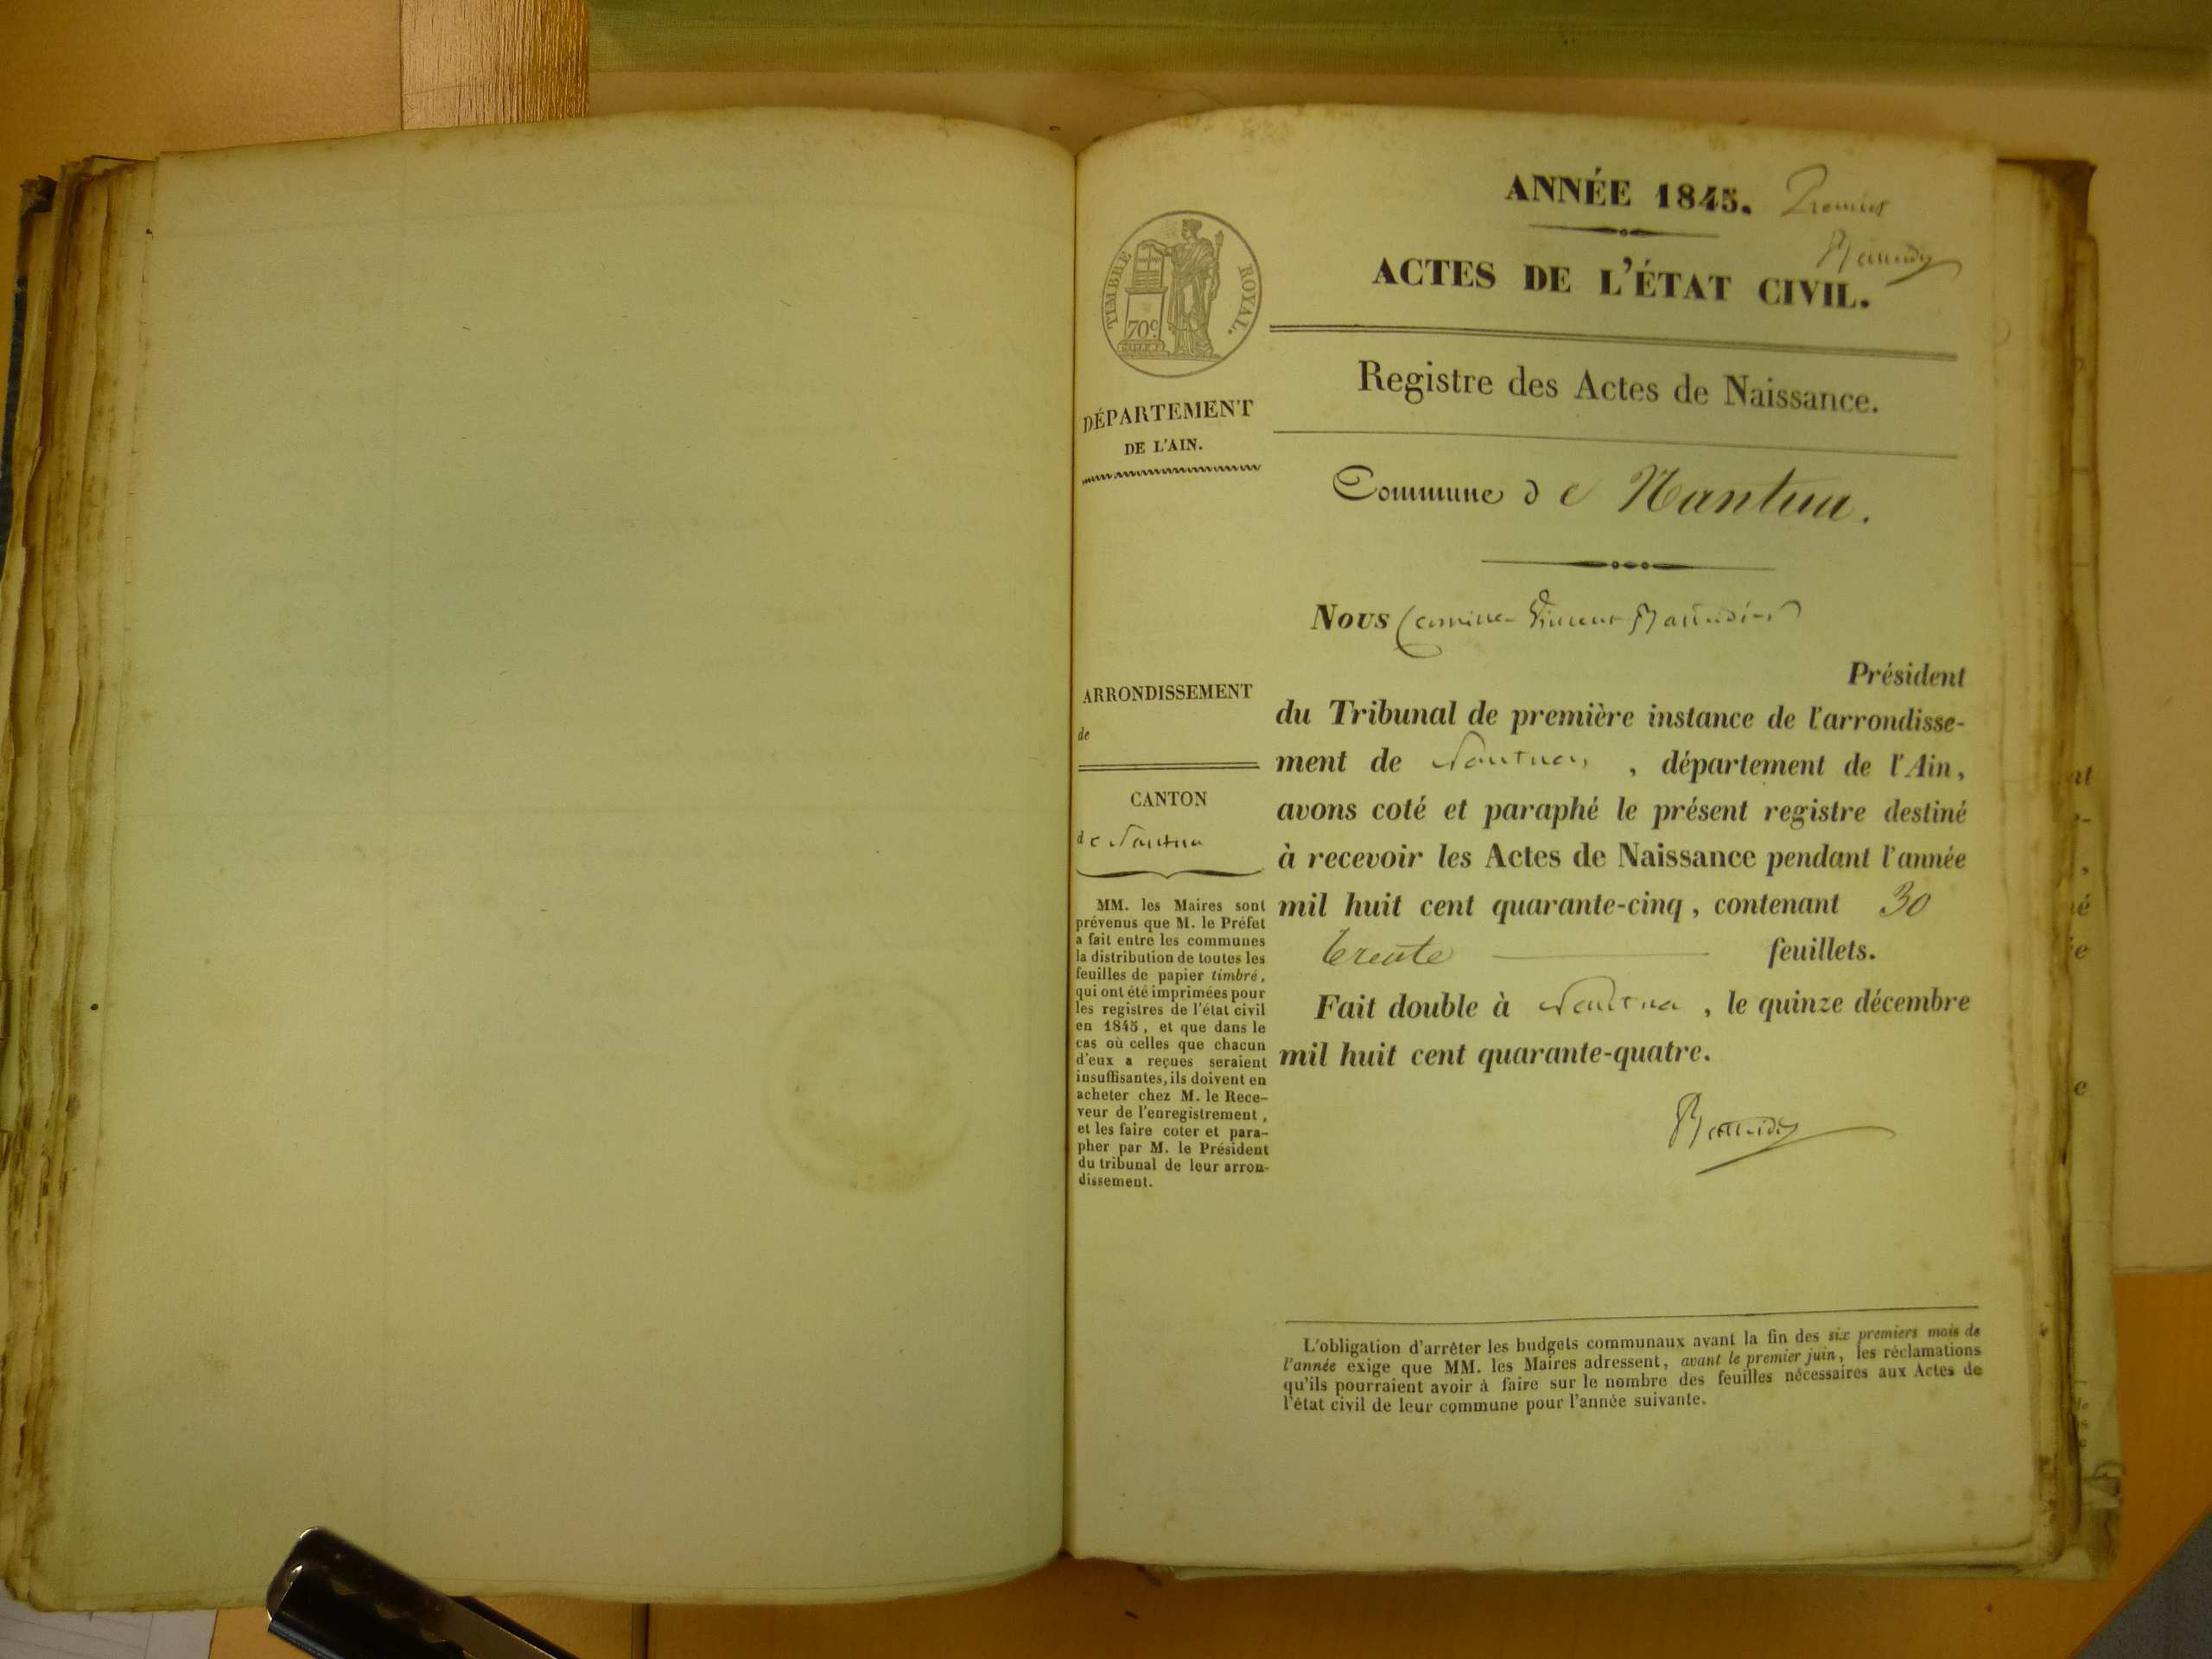 ANNÉE 1845. Premier
ACTES DE L'ÉTAT CIVIL.
TIMBRE ROYAL.
70c
Registre des Actes de Naissance.
DÉPARTEMENT
DE L'AIN.
Commune de Nantua.
Nous Camille Vincent
Président
ARRONDISSEMENT
de
du Tribunal de première instance de l'arrondisse-
ment de Nantua, département de l'Ain,
CANTON
de Nantua
avons coté et paraphé le présent registre destiné
à recevoir les Actes de Naissance pendant l'année
mil huit cent quarante-cinq, contenant 30
trente feuillets.
Fait double à Nantua, le quinze décembre
mil huit cent quarante-quatre.
MM. les Maires sont
prévenus que M. le Préfet
a fait entre les communes
la distribution de toutes les
feuilles de papier timbré,
qui ont été imprimées pour
les registres de l'état civil
en 1845, et que dans le
cas où celles que chacun
d'eux a reçues seraient
insuffisantes, ils doivent en
acheter chez M. le Rece-
veur de l'enregistrement,
et les faire coter et para-
pher par M. le Président
du tribunal de leur arron-
dissement.
L'obligation d'arrêter les budgets communaux avant la fin des six premiers mois de
l'année exige que MM. les Maires adressent, avant le premier juin, les réclamations
qu'ils pourraient avoir à faire sur le nombre des feuilles nécessaires aux Actes de
l'état civil de leur commune pour l'année suivante.